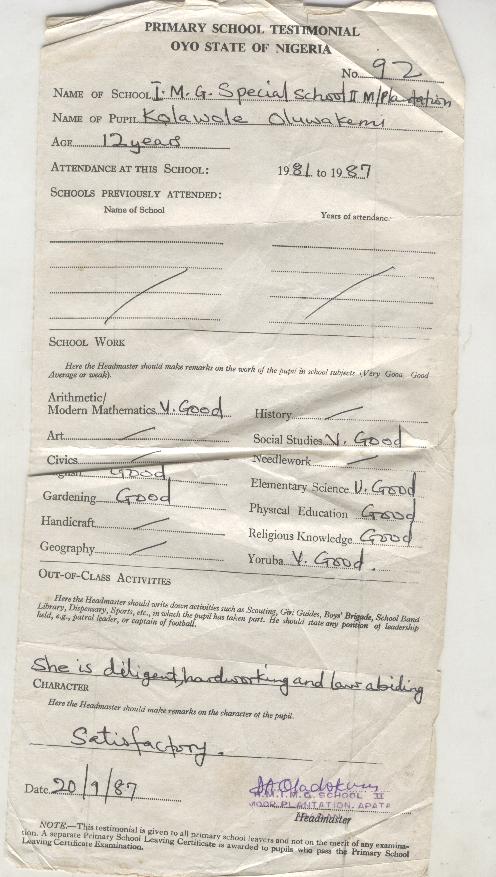 PRIMARY SCHOOL TESTIMONIAL
OYO STATE OF NIGERIA
No. 92
NAME OF SCHOOL I.M.G. Special School II M/Plantation
NAME OF PUPIL Kolawole Oluwakemi
AGE 12 years
ATTENDANCE AT THIS SCHOOL: 1981 to 1987
SCHOOLS PREVIOUSLY ATTENDED:
Name of School Years of attendance
SCHOOL WORK
Here the Headmaster should make remarks on the work of the pupil in school subjects (Very Good Good
Average or weak).
Arithmetic/
Modern Mathematics V. Good History
Art Social Studies V. Good
Civics Needlework
English Good Elementary Science V. Good
Gardening Good Physical Education Good
Handicraft Religious Knowledge Good
Geography Yoruba V. Good.
OUT-OF-CLASS ACTIVITIES
Here the Headmaster should write down activities such as Scouting, Girl Guides, Boys' Brigade, School Band
Library, Dispensary, Sports, etc., in which the pupil has taken part. He should state any position of leadership
held, e.g., patrol leader, or captain of football.
She is diligent, hardworking and law abiding
CHARACTER
Here the Headmaster should make remarks on the character of the pupil.
Satisfactory.
Date 20/9/87
SCHOOL II
MOOR PLANTATION, APATA
Headmaster
NOTE.—This testimonial is given to all primary school leavers and not on the merit of any examina-
tion. A separate Primary School Leaving Certificate is awarded to pupils who pass the Primary School
Leaving Certificate Examination.